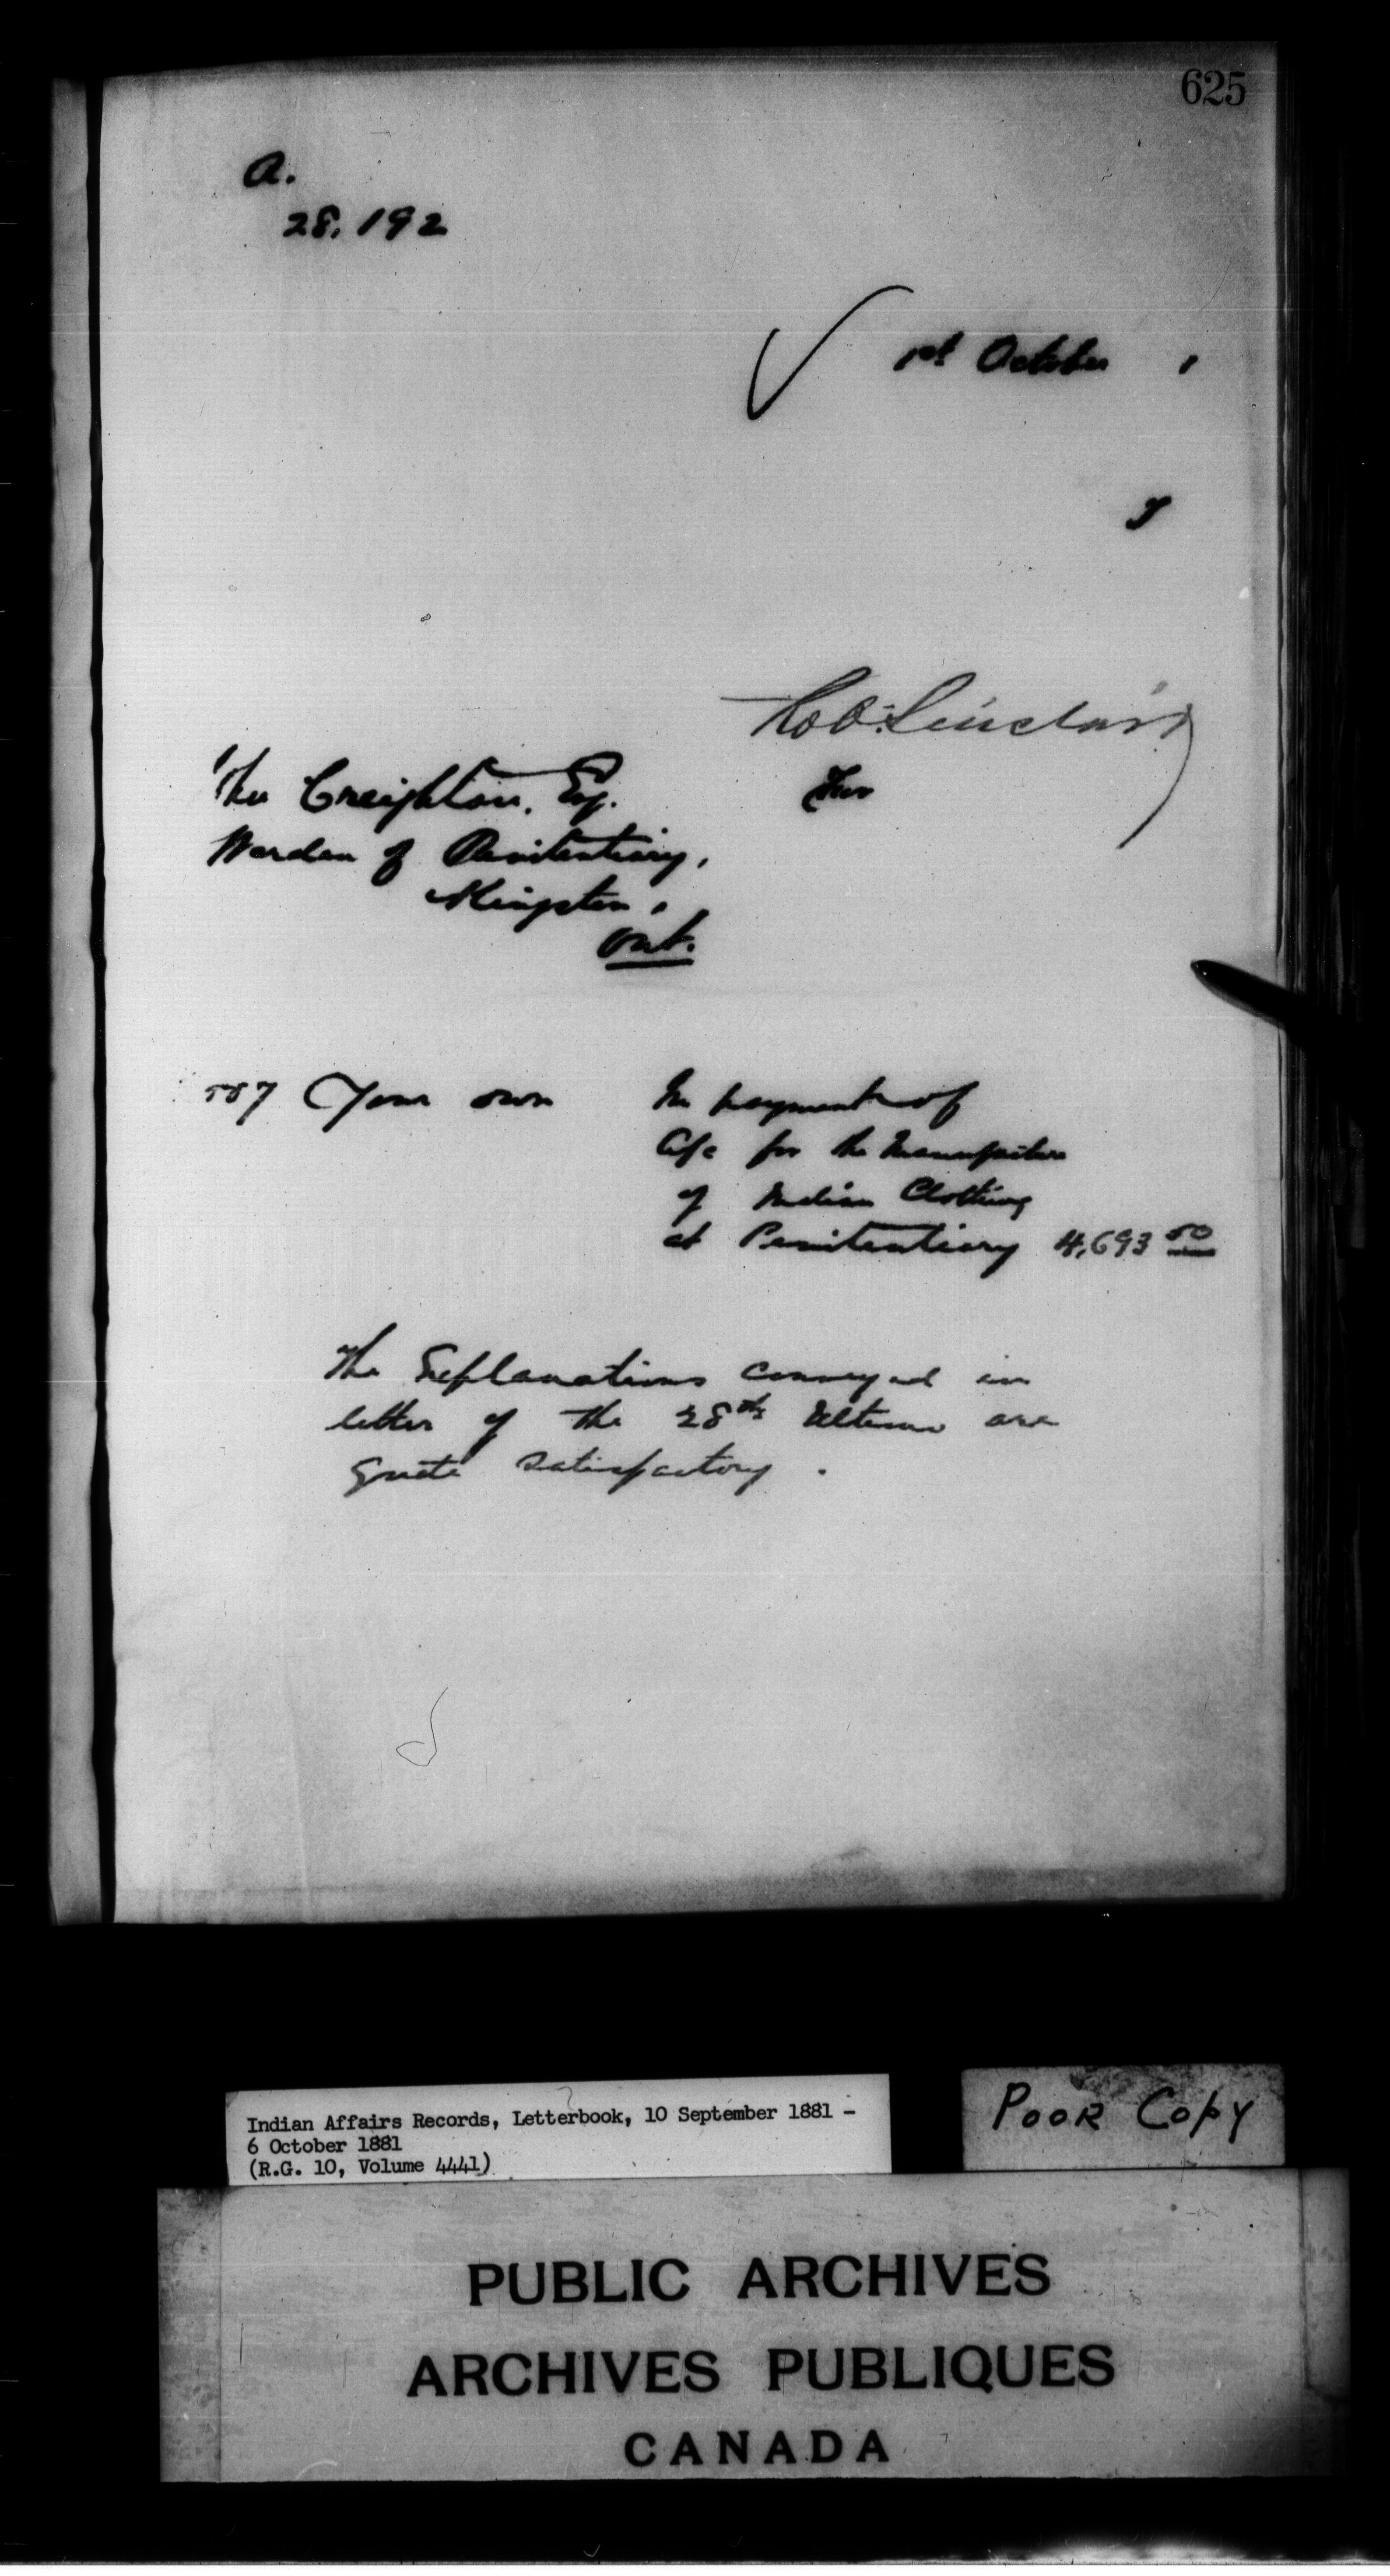 625
A.
28,192
1st October 1
J
Rob. Sinclair
For
Creighton, Esq.
Warden of Penitentiary,
Kingston,
Ont.
587 Your own In payment of
A/c for the Manufacture
of Indian Clothing
at Penitentiary 4,693 50
The Explanations conveyed in
letter of the 28th Ultimo are
quite satisfactory.
Indian Affairs Records, Letterbook, 10 September 1881 -
6 October 1881
(R.G. 10, Volume 4441)
POOR COPY
PUBLIC ARCHIVES
ARCHIVES PUBLIQUES
CANADA